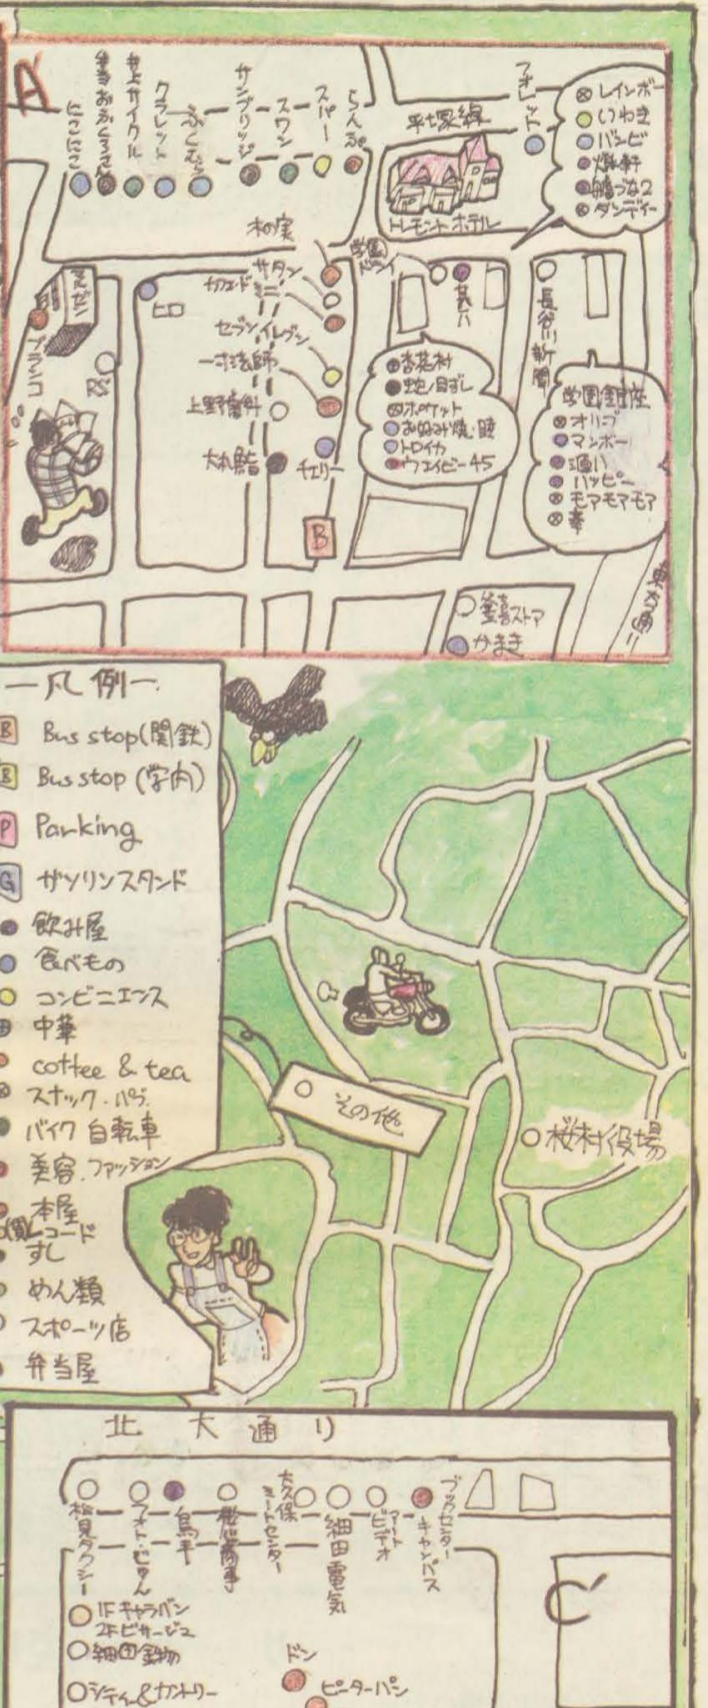 A'
にこにこ
弁当おふくろさん
井上サイクル
クラレット
ふくむら
サンブリッジ
スワン
スパー
らんぷ
平塚線
フォレット
トレモントホテル
レインボー
いわき
バンビ
ダンディー
木の実
サタン
ミニ
セブンイレブン
一寸法師
上野歯科
大丸鮨
チェリー
B
ヒロ
ブランコ
学園
甚八
長谷川新聞
杏花村
蛇ノ目ずし
ポケット
お好み焼・睦
トロイカ
ウエイビー45
学園銀座
オリーブ
マンボー
酒八
ハッピー
モアモアモア
東大通り
釜喜ストア
かまき
一凡例一
B Bus stop(関鉄)
B Bus stop (学内)
P Parking
G ガソリンスタンド
飲み屋
食べもの
コンビニエンス
中華
coffee & tea
スナック・パブ
バイク 自転車
美容、ファッション
本屋
レコード
すし
めん類
スポーツ店
弁当屋
その他
桜村役場
北大通り
フォト・じゅん
鳥平
大久保
ミートセンター
細田電気
アート
ビデオ
ブックセンター
キャンパス
C'
1F キャラバン
2F ビサージュ
細田金物
シティ&カントリー
ドン
ピーターパン